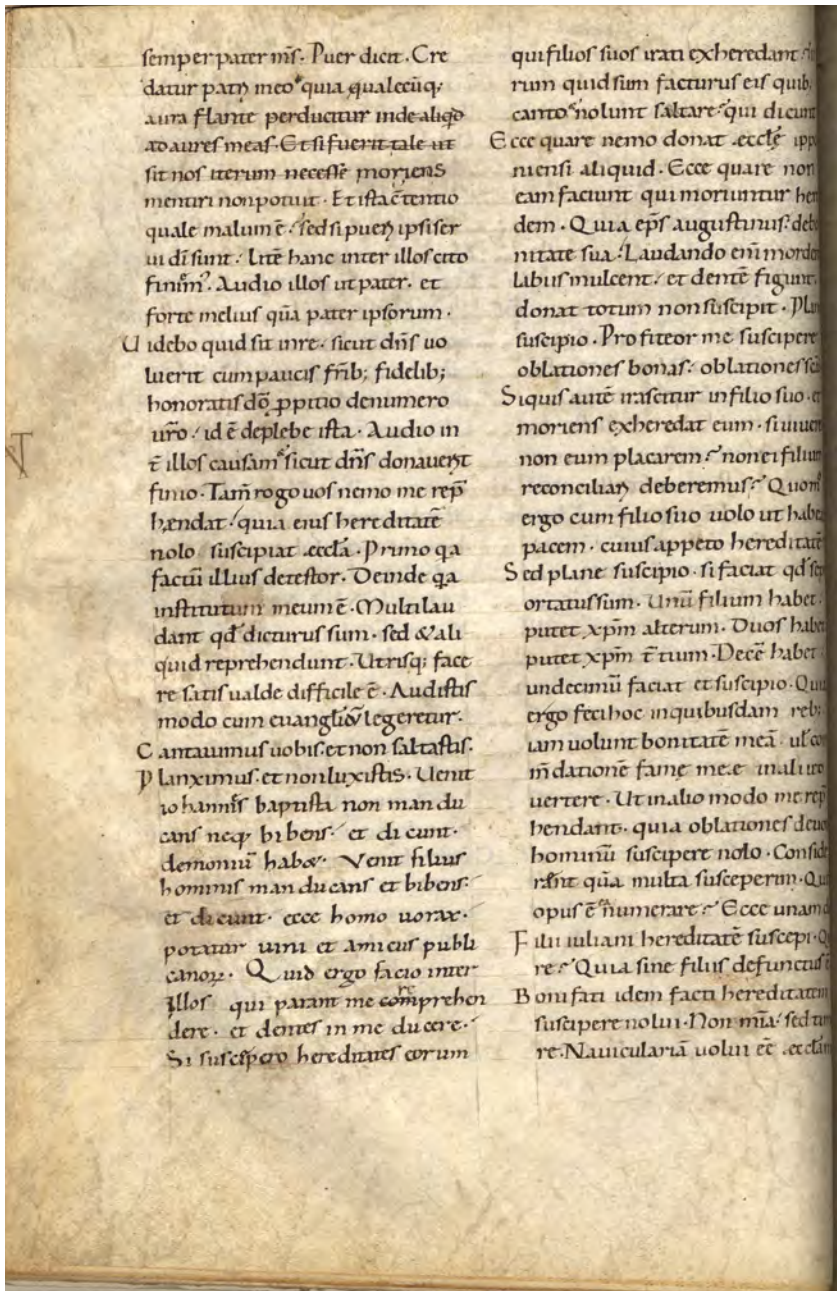 semper pater nr̄s. Puer dicit. Cre
datur patri meo quia qualecūq;
aura flante perducitur inde aliqđ
ad aures meas. Et si fuerit tale ut
sit nos iterum necesse moriens
mentiri non potuit. Et ista c̄tentio
quale malum ē. sed si pueri ipsi ser
ui dī sunt. Litē hanc inter illos cito
finim̄. Audio illos ut pater. et
forte melius quā pater ipsorum.
Uidebo quid sit in re. sicut dn̄s uo
luerit cum paucis fr̄ib; fidelib;
honoratis dō ꝓpitio de numero
ur̄o. id ē de plebe ista. Audio in
t̄ illos causam sicut dn̄s donauerit
finio. Tam̄ rogo uos nemo me rep̄
hendat. quia eius hereditatē
nolo suscipiat eccła. Primo qa
factū illius detestor. Deinde qa
institutum meum ē. Multi lau
dant qđ dicturus sum. sed & ali
quid reprehendunt. Utrisq; face
re satis ualde difficile ē. Audistis
modo cum euangliū legeretur.
Cantauimus uobis. et non saltastis.
Planximus. et non luxistis. Uenit
iohannes baptista non man du
cans neq; bibens. et dicunt.
demoniū hab&. Venit filius
hominis manducans et bibens.
et dicunt. ecce homo uorax.
potatur uini et amicus publi
canoꝝ. Quid ergo facio inter
illos qui parant me comprehen
dere. et dentes in me ducere.
Si suscepero hereditates eorum
qui filios suos irati exheredant
rum quid sum facturus eis quib;
canto. nolunt saltare. qui dicunt
Ecce quare nemo donat ecclę ipp
niensi aliquid. Ecce quare non
eam faciunt qui moriuntur her
dem. Quia ep̄s augustinus. de bo
nitate sua. Laudando enī mordent
labiis mulcent. et dentē figunt.
donat totum non suscipit. Plane
suscipio. Profiteor me suscipere
oblationes bonas. oblationes sc̄
Si quis autē irascitur in filio suo. et
moriens exheredat eum. si uiueret
non eum placarem. non ei filium
reconciliari deberemus. Quom̄
ergo cum filio suo uolo ut habe
pacem. cuius appeto hereditatē
Sed plane suscipio. si faciat qđ sep
ortatus sum. Unū filium habet.
putet xp̄m alterum. Duos habet
putet xp̄m t̄tium. Decē habet.
undecimū faciat et suscipio. Qui
ergo feci hoc in quibusdam reb;
iam uolunt bonitatē meā. uł co
m̄dationē famę meę in aliud
uertere. Ut in alio modo me rep̄
hendant. quia oblationes deuo
hominū suscipere nolo. Conside
rent quā multa susceperim. Qui
opus ē numerare. Ecce unam d
Filii iuliani hereditatē suscepi. Q
re. Quia sine filiis defunctus ē
Bonifati idem facti hereditatem
suscipere nolui. Non mīa. sed tim
re. Nauiculariā uolui eē ecclām